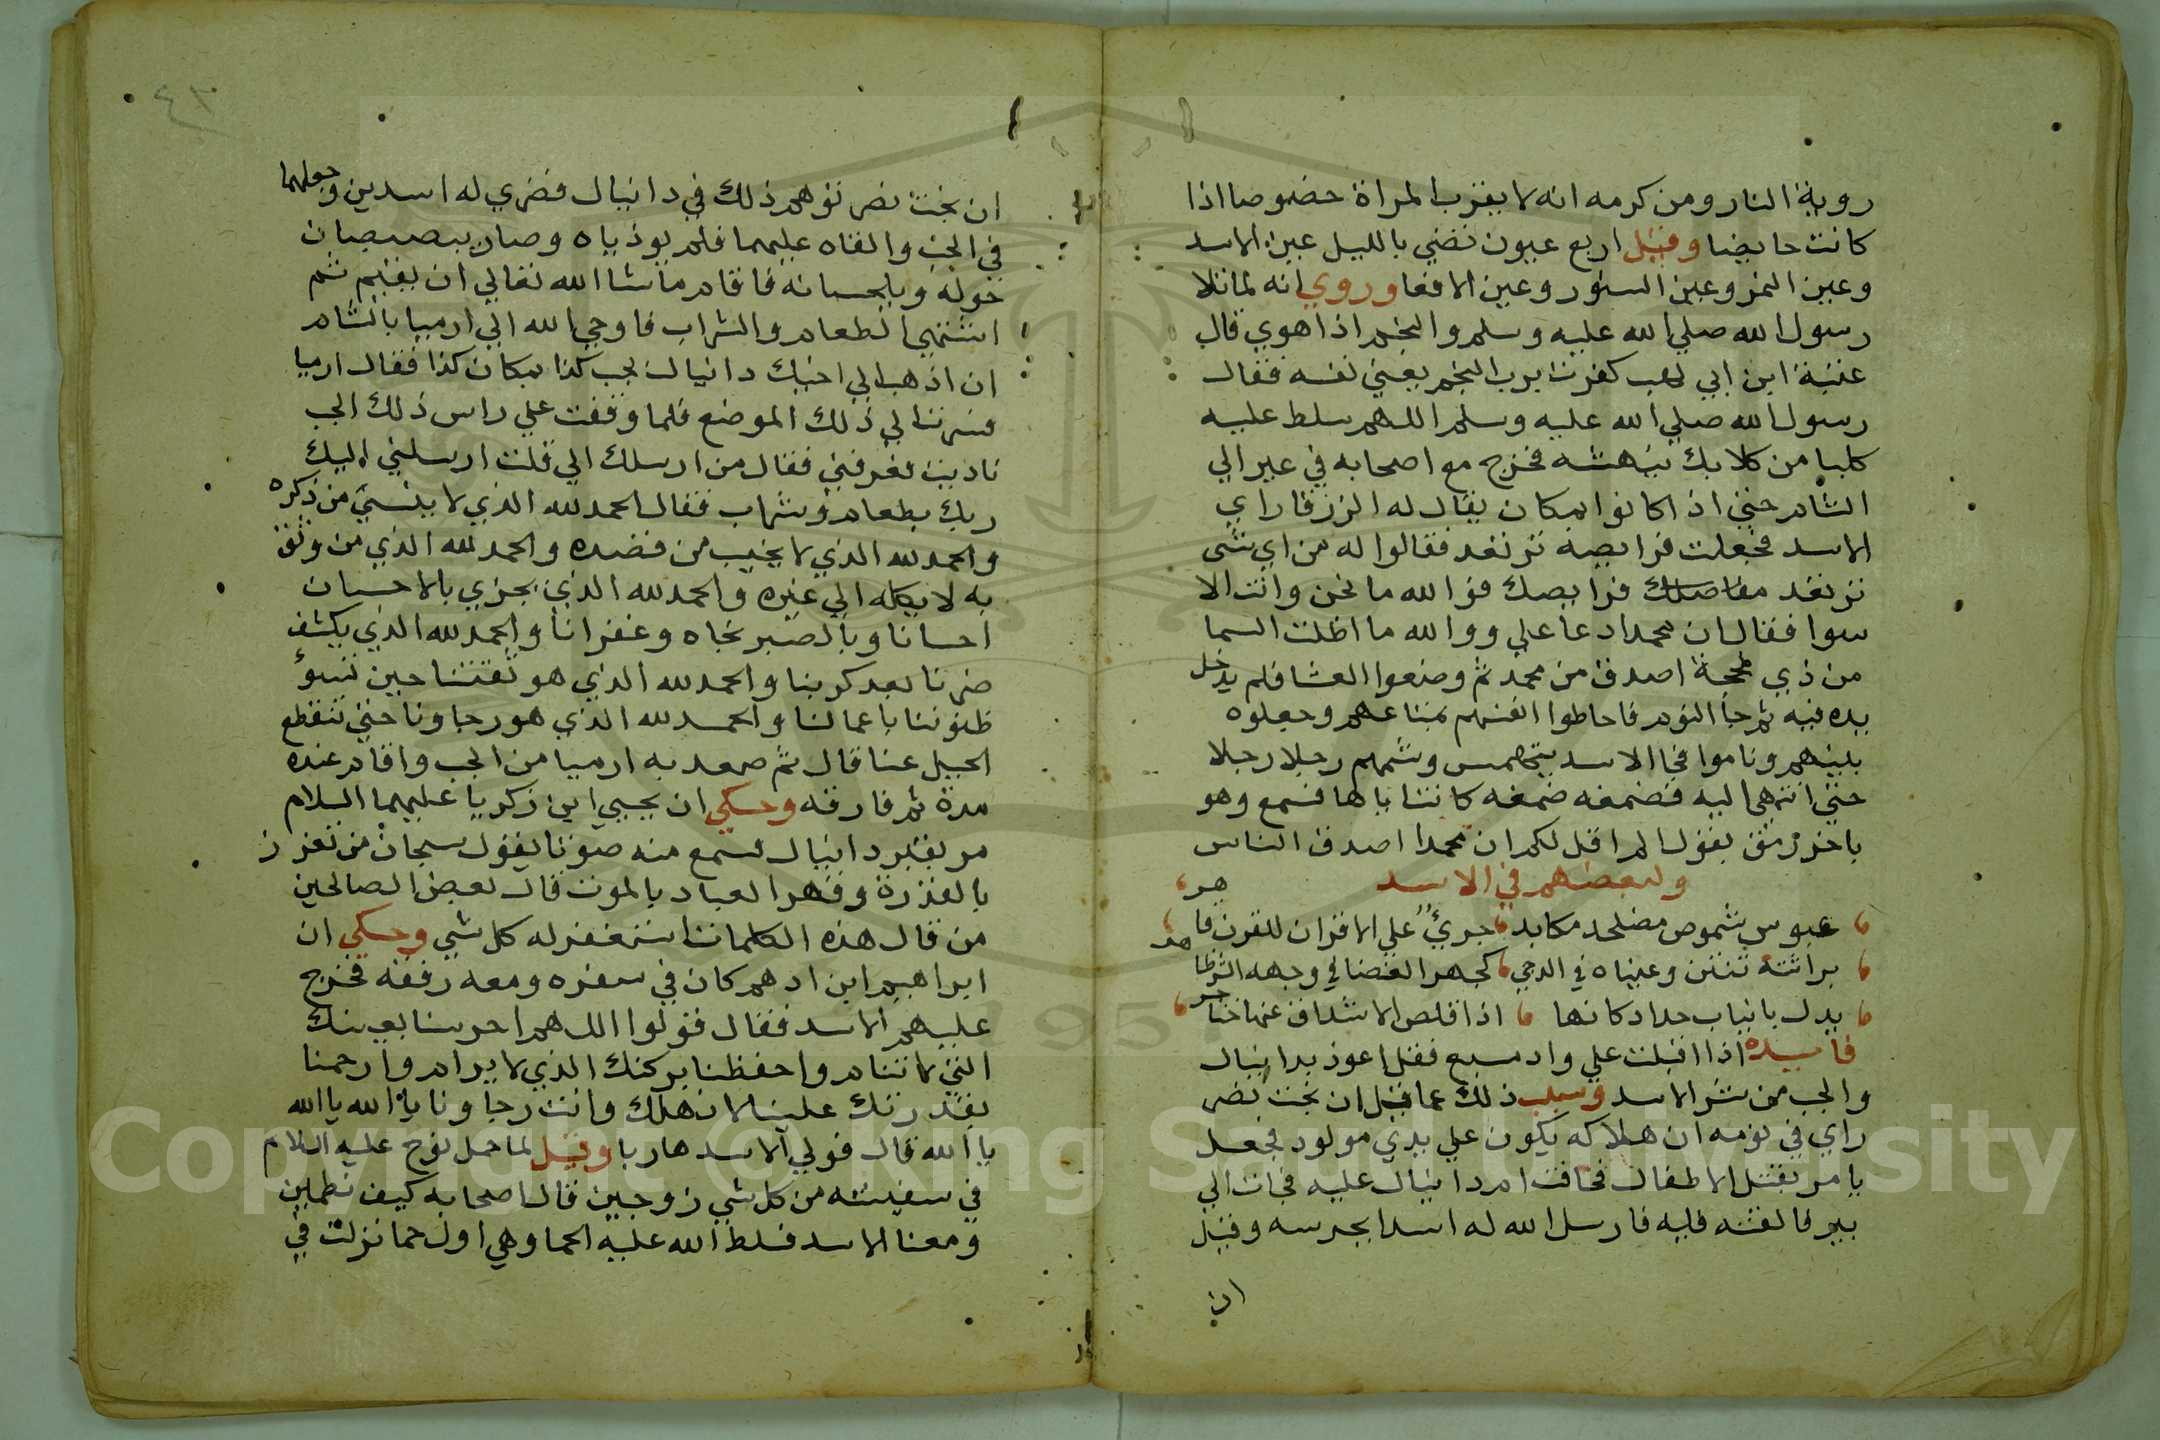 روية النار ومن كرمه انه لا يقرب المراة خصوصا اذا
كانت حايضا وقيل اربع عيون تضي بالليل عين الاسد
وعين النمر وعين السنور وعين الافعا وروي انه لما تلا
رسول الله صلي الله عليه وسلم والنجم اذا هوي قال
عتبة ابن ابي لهب كفرت برب النجم يعني نفسه فقال
رسول الله صلي الله عليه وسلم اللهم سلط عليه
كلبا من كلابك ينهشه فخرج مع اصحابه في عير الي
الشام حتي اذا كانوا بمكان يقال له الزرقا راي
الاسد فجعلت فرايصه ترتعد فقالوا له من اي شي
ترتعد فرايصك فو الله ما نحن وانت الا
سوا فقال ان محمدا دعا علي ووالله ما اظلت السما
من ذي لهجة اصدق من محمد ثم وضعوا العشا فلم يدخل
يده فيه ثم جا النوم فاحاطوا انفسهم بمتاعهم وجعلوه
بينهم وناموا فجا الاسد يتهمس وشمهم رجلا رجلا
حتي انتهي اليه فضمغه ضمغه كانت اياها فسمع وهو
باخر رمق يقول الم اقل لكم ان محمدا اصدق الناس
ولبعضهم في الاسد
عبوس شموص مصلخد مكابد جريء علي الاقران للقرن قاهر
براثنه تشنن وعيناه في الدجي كجمر الغضا في وجهه الشر ظاهر
يدل بانياب حداد كانها اذا قلص الاشداق عنها خناجر
فاييدة اذا اقبلت علي واد مسبع فقل اعوذ بدانيال
والجب من شر الاسد وسبب ذلك عما قيل ان بخت نصر
راي في نومه ان هلاكه يكون علي يدي مولود فجعل
يامر بقتل الاطفال فخافت ام دانيال عليه فجات الي
بير فالقته فيه فارسل الله له اسدا يحرسه وقيل
ان
٤٣
ان بخت نصر توهم ذلك في دانيال فضري له اسدين وجعلهما
في الجب والقاه عليهما فلم يوذياه وصار يبصبصان
حوله ويلحسانه فاقام ما شا الله تعالي ان يقيم ثم
اشتهي الطعام والشراب فاوحي الله الي ارميا بالشام
ان اذهب الي اخيك دانيال بجب كذا بمكان كذا فقال ارميا
فسرت الي ذلك الموضع فلما وقفت علي راس ذلك الجب
ناديت فعرفني فقال من ارسلك الي قلت ارسلني اليك
ربك بطعام وشراب فقال الحمد لله الذي لا ينسي من ذكره
والحمد لله الذي لا يخيب من قصده والحمد لله الذي من وثق
به لا يكله الي غيره والحمد لله الذي يجزي بالاحسان
احسانا وبالصبر نجاه وغفرانا والحمد لله الذي يكشف
ضرنا بعد كربنا والحمد لله الذي هو ثقتنا حين تسوء
ظنوننا باعمالنا والحمد لله الذي هو رجاونا حتي تنقطع
الحيل عنا قال ثم صعد به ارميا من الجب واقام عنده
مدة ثم فارقه وحكي ان يحيي ابن زكريا عليهما السلام
مر بقبر دانيال فسمع منه صوتا يقول سبحان من تعزز
بالقدرة وقهر العباد بالموت قال بعض الصالحين
من قال هذه الكلمات استغفر له كل شي وحكي ان
ابراهيم ابن ادهم كان في سفره ومعه رفقه فخرج
عليهم الاسد فقال قولوا اللهم احرسنا بعينك
التي لا تنام واحفظنا بركنك الذي لا يرام وارحمنا
بقدرتك علينا لا نهلك وانت رجاونا يا الله يا الله
يا الله قال فولي الاسد هاربا وقيل لما حمل نوح عليه السلام
في سفينته من كل شي زوجين قال اصحابه كيف نطمين
ومعنا الاسد فسلط الله عليه الحما وهي اول حما نزلت في
Copyright © King Saud University
1957